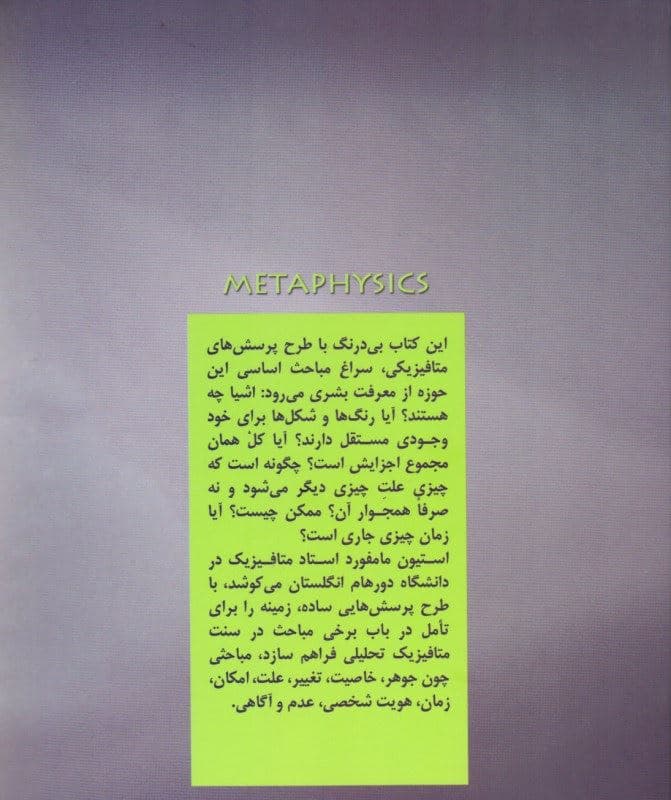 METAPHYSICS
این کتاب بی‌درنگ با طرح پرسش‌های
متافیزیکی، سراغ مباحث اساسی این
حوزه از معرفت بشری می‌رود: اشیا چه
هستند؟ آیا رنگ‌ها و شکل‌ها برای خود
وجودی مستقل دارند؟ آیا کلْ همان
مجموع اجزایش است؟ چگونه است که
چیزی علتِ چیزی دیگر می‌شود و نه
صرفاً همجوار آن؟ ممکن چیست؟ آیا
زمان چیزی جاری است؟
استیون مامفورد استاد متافیزیک در
دانشگاه دورهام انگلستان می‌کوشد، با
طرح پرسش‌هایی ساده، زمینه را برای
تأمل در باب برخی مباحث در سنت
متافیزیک تحلیلی فراهم سازد، مباحثی
چون جوهر، خاصیت، تغییر، علت، امکان،
زمان، هویت شخصی، عدم و آگاهی.